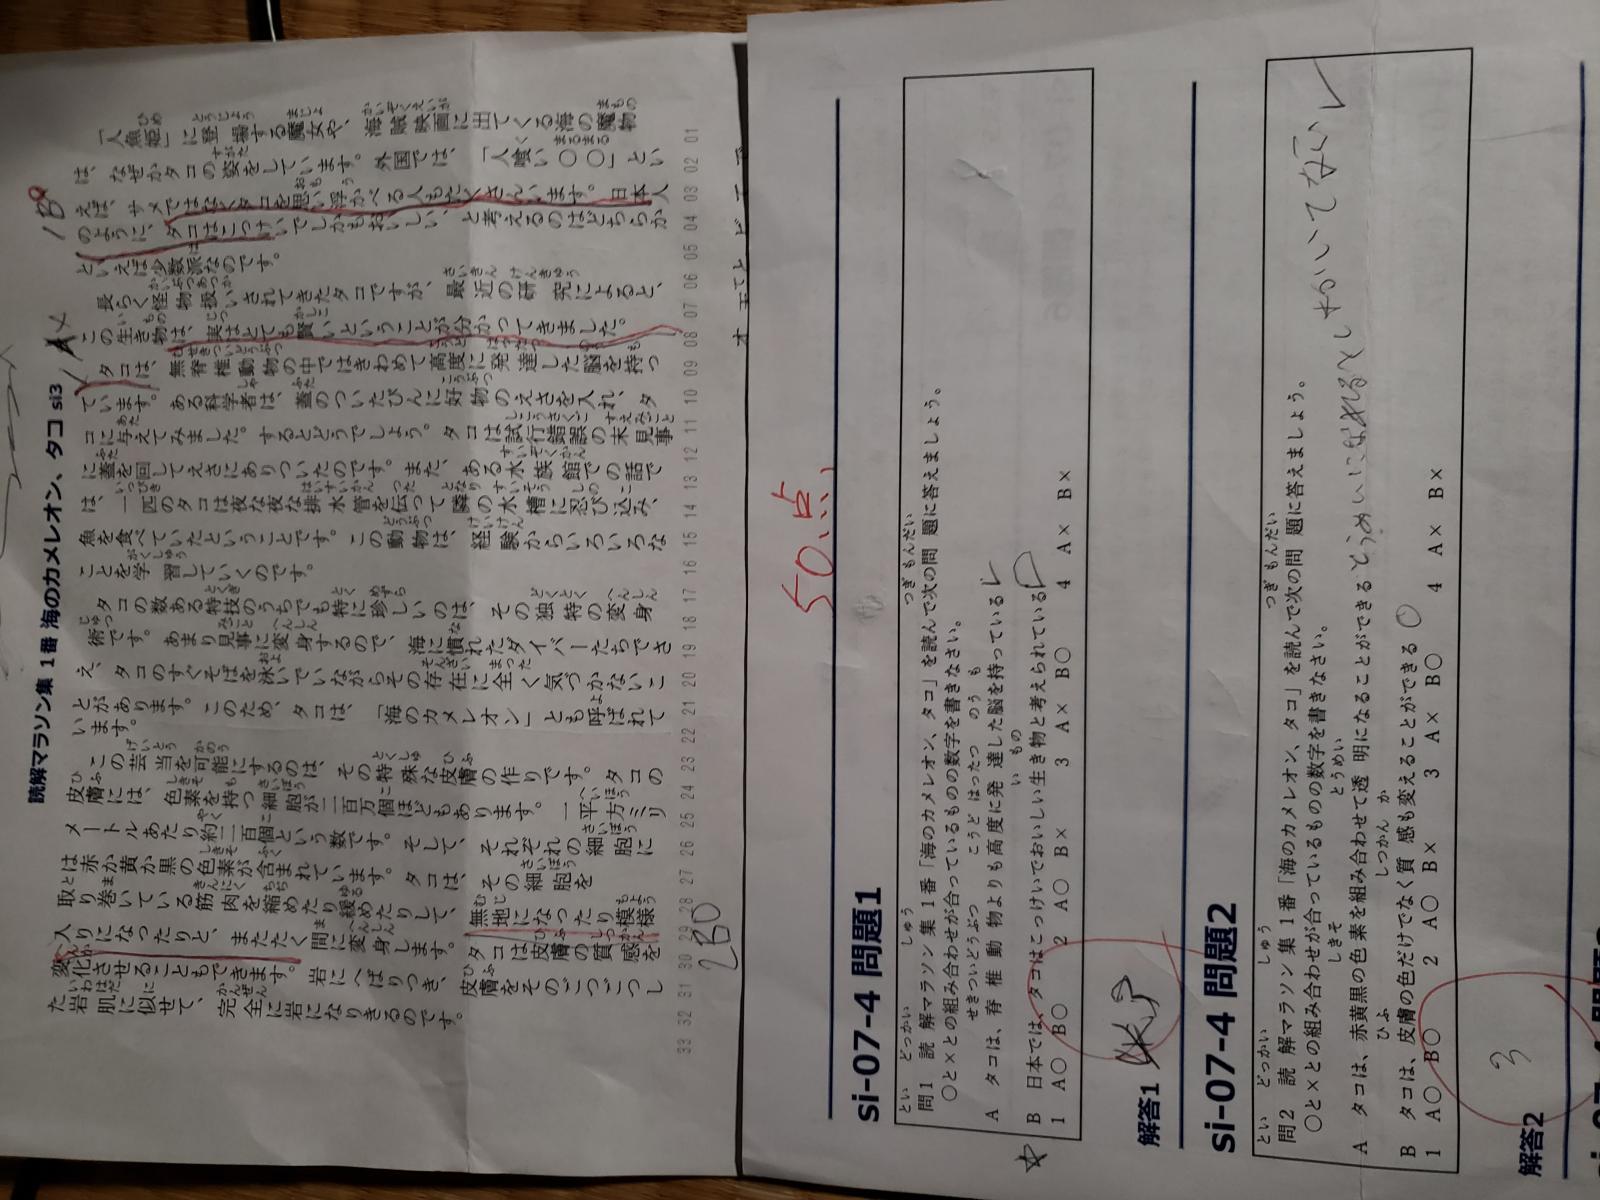 読解マラソン集 1番 海のカメレオン、タコ si3
「人魚姫」に登場する魔女や、海賊映画に出てくる海の魔物
は、なぜかタコの姿をしています。外国では、「人喰い〇〇」とい
えば、サメではなくタコを思い浮かべる人もたくさんいます。日本人
のように、タコはこっけいでしかもおいしい、と考えるのはどちらか
といえば少数派なのです。
長らく怪物扱いされてきたタコですが、最近の研究によると、
この生き物は、実はとても賢いということが分かってきました。
タコは、無脊椎動物の中ではきわめて高度に発達した脳を持っ
ています。ある科学者は、蓋のついたびんに好物のえさを入れ、タ
コに与えてみました。するとどうでしょう。タコは試行錯誤の末見事
に蓋を回してえさにありついたのです。また、ある水族館での話で
は、一匹のタコは夜な夜な排水管を伝って隣の水槽に忍び込み、
魚を食べていたということです。この動物は、経験からいろいろな
ことを学習していくのです。
タコの数ある特技のうちでも特に珍しいのは、その独特の変身
術です。あまり見事に変身するので、海に慣れたダイバーたちでさ
え、タコのすぐそばを泳いでいながらその存在に全く気づかないこ
とがあります。このため、タコは、「海のカメレオン」とも呼ばれて
います。
この芸当を可能にするのは、その特殊な皮膚の作りです。タコの
皮膚には、色素を持つ細胞が二百万個ほどもあります。一平方ミリ
メートルあたり約二百個という数です。そして、それぞれの細胞に
は赤か黄か黒の色素が含まれています。タコは、その細胞を
取り巻いている筋肉を縮めたり緩めたりして、無地になったり模様
入りになったりと、またたく間に変身します。タコは皮膚の質感を
変化させることもできます。岩にへばりつき、皮膚をそのごつごつし
た岩肌に似せて、完全に岩になりきるのです。
01 02 03 04 05 06 07 08 09 10 11 12 13 14 15 16 17 18 19 20 21 22 23 24 25 26 27 28 29 30 31 32 33
2BO
50点
si-07-4 問題1
問1 読解マラソン集1番「海のカメレオン、タコ」を読んで次の問題に答えましょう。
〇と×との組み合わせが合っているものの数字を書きなさい。
A タコは、脊椎動物よりも高度に発達した脳を持っている
B 日本では、タコはこっけいでおいしい生き物と考えられている
1 A〇 B〇 2 A〇 B× 3 A× B〇 4 A× B×
解答1
si-07-4 問題2
問2 読解マラソン集1番「海のカメレオン、タコ」を読んで次の問題に答えましょう。
〇と×との組み合わせが合っているものの数字を書きなさい。
A タコは、赤黄黒の色素を組み合わせて透明になることができる
B タコは、皮膚の色だけでなく質感も変えることができる 〇
1 A〇 B〇 2 A〇 B× 3 A× B〇 4 A× B×
解答2 3